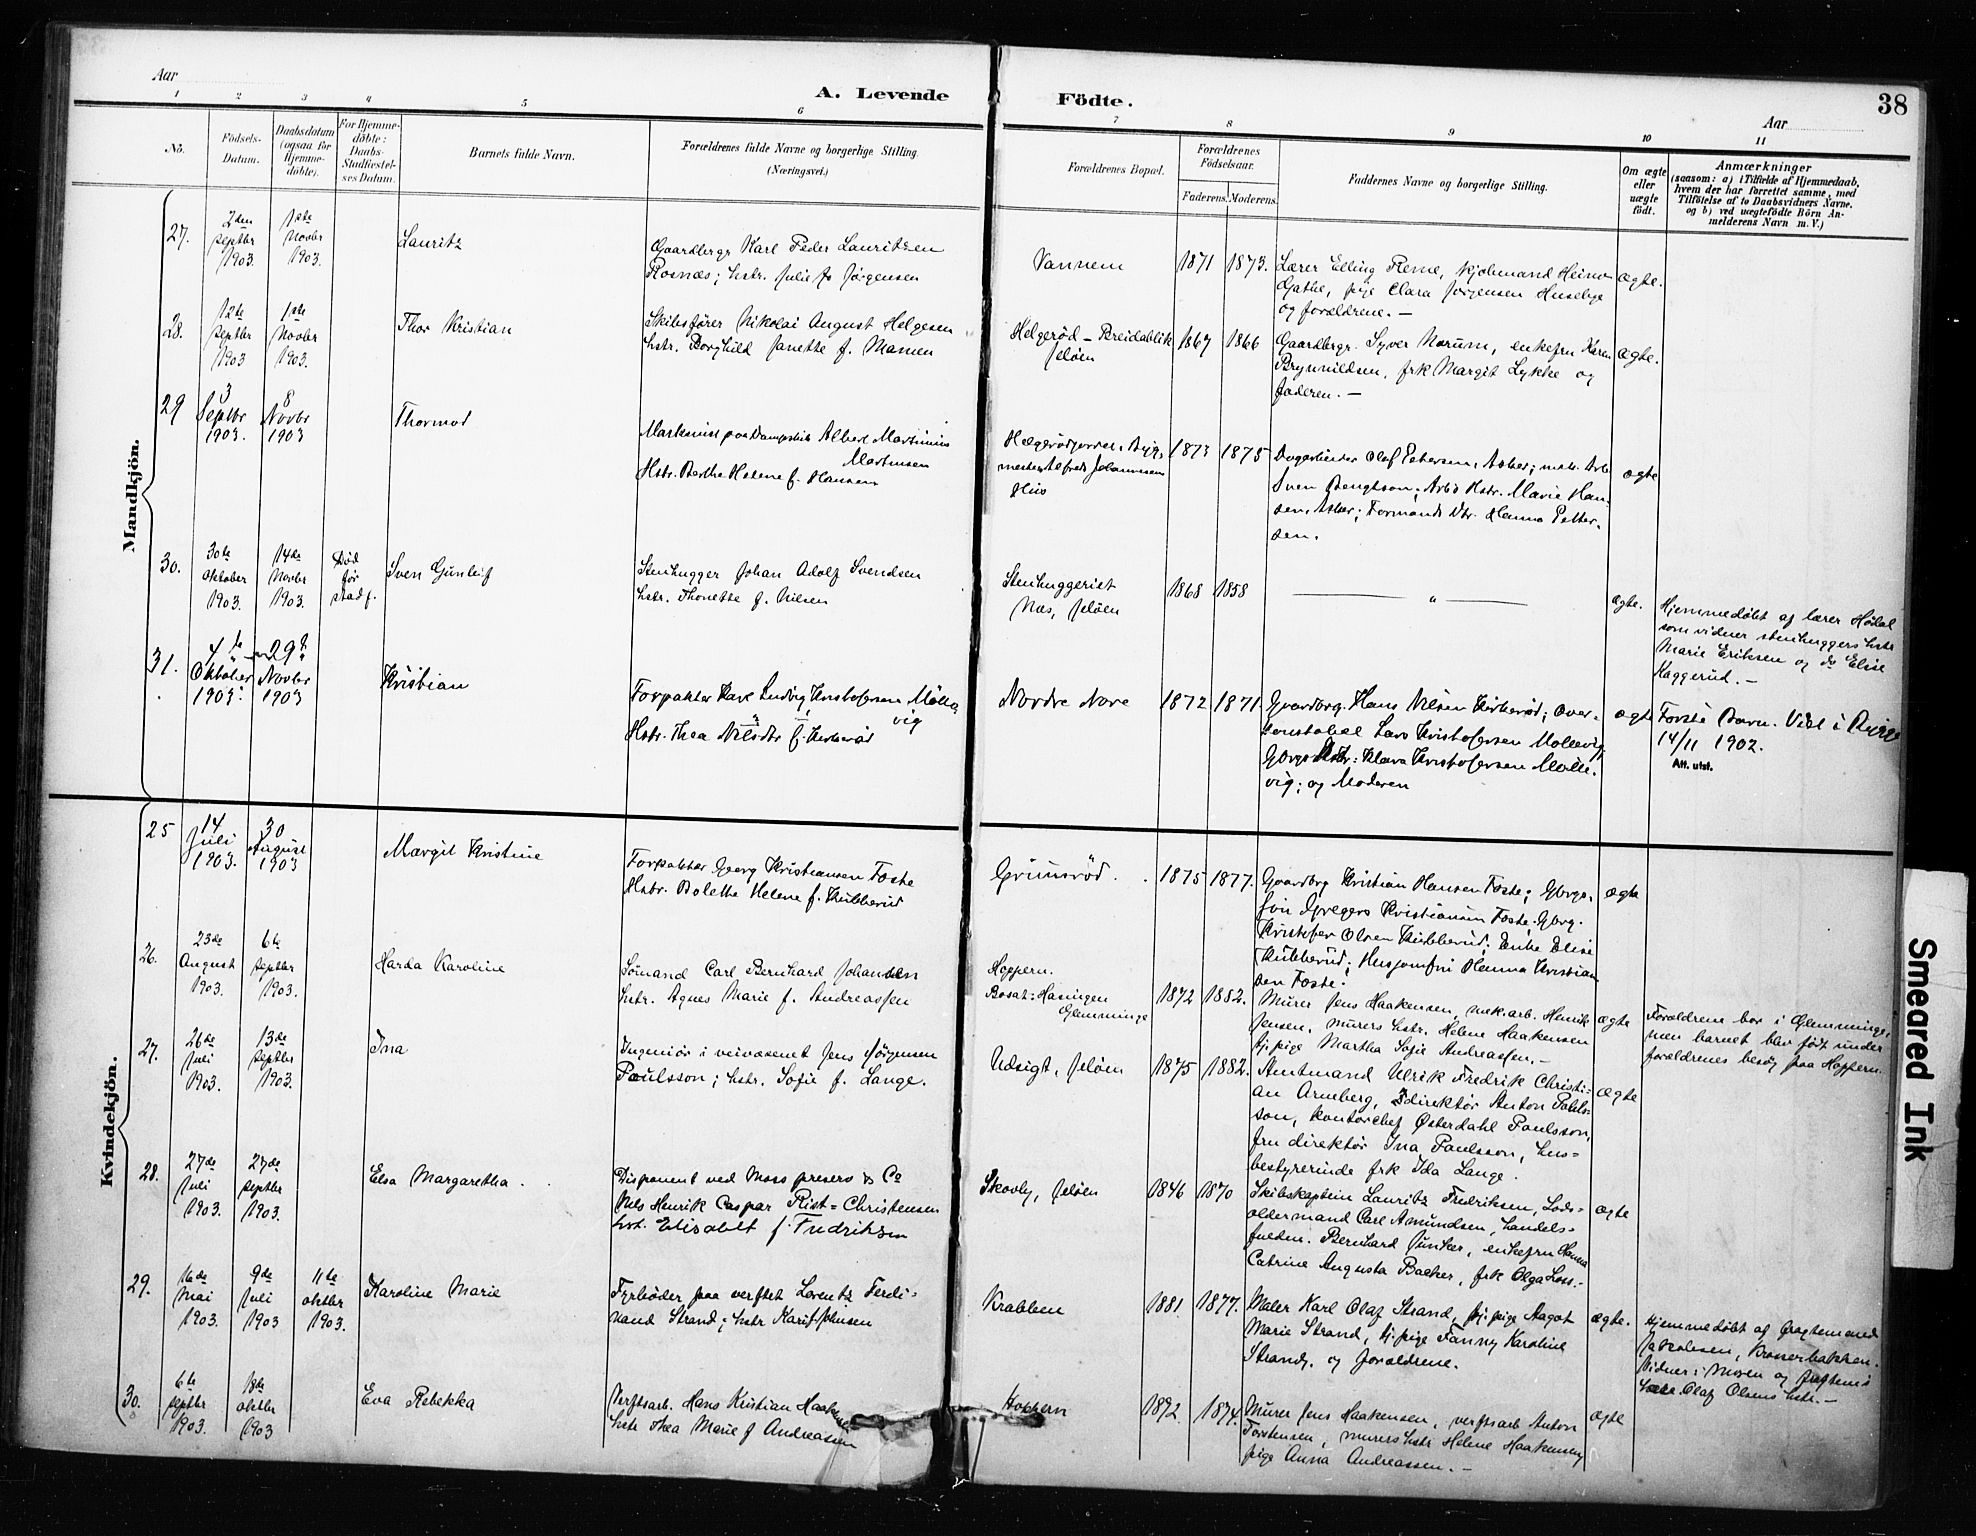 Aar
A. Levende Födte.
38
Aar
1 2 3 4 5 6 7 8 9 10 11
No.
Födsels-
Datum.
Daabsdatum
(ogsaa for
Hjemme-
döbte).
For Hjemme-
döbte:
Daabs-
Stadfæstel-
ses Datum.
Barnets fulde Navn.
Forældrenes fulde Navne og borgerlige Stilling.
(Næringsvei.)
Forældrenes Bopæl.
Forældrenes
Födselsaar.
Faderens. Moderens.
Faddernes Navne og borgerlige Stilling.
Om ægte
eller
uægte
födt.
Anmærkninger
(saasom: a) i Tilfælde af Hjemmedaab,
hvem der har forrettet samme, med
Tilföielse af to Daabsvidners Navne.
og b) ved uægtefödte Börn An-
melderens Navn m. V.)
Mandkjön.
27.
2den
septbr
1903.
1ste
Novbr
1903.
Lauritz
Gaardbergr Karl Peder Lauritzen
Rosnæs; hstr. Julie f. Jørgensen
Vannem
1871 1873.
Lærer Elling Reme,
Gathe, pige Clara Jørgensen Huseby
og forældrene. —
ægte.
28.
12te
septbr
1903
1ste
Novbr
1903.
Thor Kristian
Skibsfører Nikolai August Helgesen
hstr. Borghild Janette f. Mamen
Helgerød - Breidablik
Jeløen
1867 1866
Gaardbergr. Syver Norum, enkefru Karen
Brynnildsen, frk Margit Lykke og
faderen. —
ægte.
29
3
Septbr
1903.
8
Novbr
1903
Thormod
Maskinist paa Dampskib Albert Martinius
Martinsen
Hstr. Berthe Helene f. Hansen
mester Alfred Johannesens
Hus
1873 1875
Olaf Petersen, Asker;
Sven Bengtson; Arbs Hstr. Marie Han-
sen, Asker; Formands Dtr. Hanna Petter-
sen.
ægte
30.
30te
oktober
1903.
14de
Novbr
1903.
Død
før
stadf.
Sven Gunleif
Stenhugger Johan Adolf Svendsen
hstr. Thonette f. Nilsen
Stenhuggeriet
Næs, Jeløen
1868 1858
— " —
ægte.
Hjemmedøbt af lærer Hødal
som vidner stenhuggers hstr
Marie Eriksen og do Elise
Kaggerud. —
31.
4de
Oktober
1903.
29de
Novbr
1903
Kristian
Forpakter Karl Ludvig Kristofersen Mølle-
vig
Hstr. Thea Nilsdtr f. Kirkerød
Nordre Nore
1872 1871
Gaardbrg. Hans Nilsen Kirkerød; Over-
konstabel Lars Kristofersen Møllevig;
Klara Kristofersen Mølle-
vig; og Moderen
ægte
Første Barn. Viet i Rygge
14/11 1902.
Att. utst.
Kvindekjön.
25
14
Juli
1903.
30
August
1903
Margit Kristine
Forpakter Georg Kristiansen Foste
Hstr. Bolette Helene f. Kubberud
Grimsrød.
1875 1877.
Gaardbrg Kristian Hansen Foste;
Gregers Kristiansen Foste;
Kristofer Olsen Kubberud; Enke Elise
Kubberud; Husjomfru Hanna Kristian-
sen Foste.
ægte
26.
23de
August
1903.
6te
septbr
1903.
Harda Karoline
Sømand Carl Bernhard Johansen
hstr. Agnes Marie f. Andreassen
Hoppern.
Bosat: Hasingen
Glemminge
1872 1882.
Murer Jens Haakensen, mek. arb. Henrik
Jensen, murers hstr. Helene Haakensen
tj. pige Martha Sofie Andreassen. —
ægte
Forældrene bor i Glemminge,
men barnet blev født under
forældrenes besøg paa Hoppern.
27.
26de
Juli
1903.
13de
septbr
1903.
Ina
Ingeniør i veivæsenet Jens Jørgensen
Paulsson; hstr. Sofie f. Lange.
Udsigt, Jeløen
1875 1882.
Amtmand Ulrik Fredrik Christi-
an Arneberg, direktør Anton Pauls-
son, kontorchef Østerdahl Paulsson,
fru direktør Ina Paulsson, hus-
bestyrerinde frk Ida Lange.
ægte
28.
27de
Juli
1903.
27de
septbr
1903.
Elsa Margaretha.
Disponent ved Moss preserv & Co
Nils Henrik Caspar Rist-Christensen
hst. Elisabet f. Fredriksen
Skovly, Jeløen
1846 1870
Skibskaptein Lauritz Fredriksen, Lods-
oldermand Carl Amundsen, handels-
fuldm. Bernhard Junker, enkefru Hanna
Catrine Augusta Backer, frk Olga
ægte
29.
16de
Mai
1903.
9de
Juli
1903
11te
oktbr
1903.
Karoline Marie
Fyrbøder paa verftet Lorentz Ferdi-
nand Strand; hstr Karif. Johnsen
Krabben
1881. 1877.
Maler Karl Olaf Strand, tj. pige Aagot
Marie Strand, tj. pige Fanny Karoline
Strand, og forældrene.
ægte.
Hjemmedøbt af fragtemand
Jakobsen,
Vidner:
Olaf Olsens hstr. —
30.
6te
septbr
1903.
18de
oktbr
1903
Eva Rebekka
Verftsarb. Hans Kristian Haakensen
hstr Thea Marie f Andreassen
Hoppern
1872. 1874.
Murer Jens Haakensen, verftsarb Anton
Torstensen, murers hstr Helene Haakensen,
pige Anna Andreassen. —
ægte
Smeared Ink